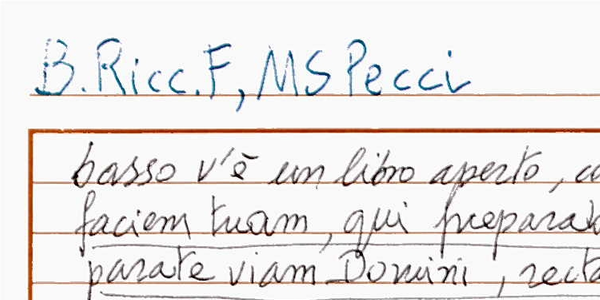 B.Ricc.F, MS Pecci
basso v'è un libro aperto,
faciem tuam, qui
parate viam Domini,